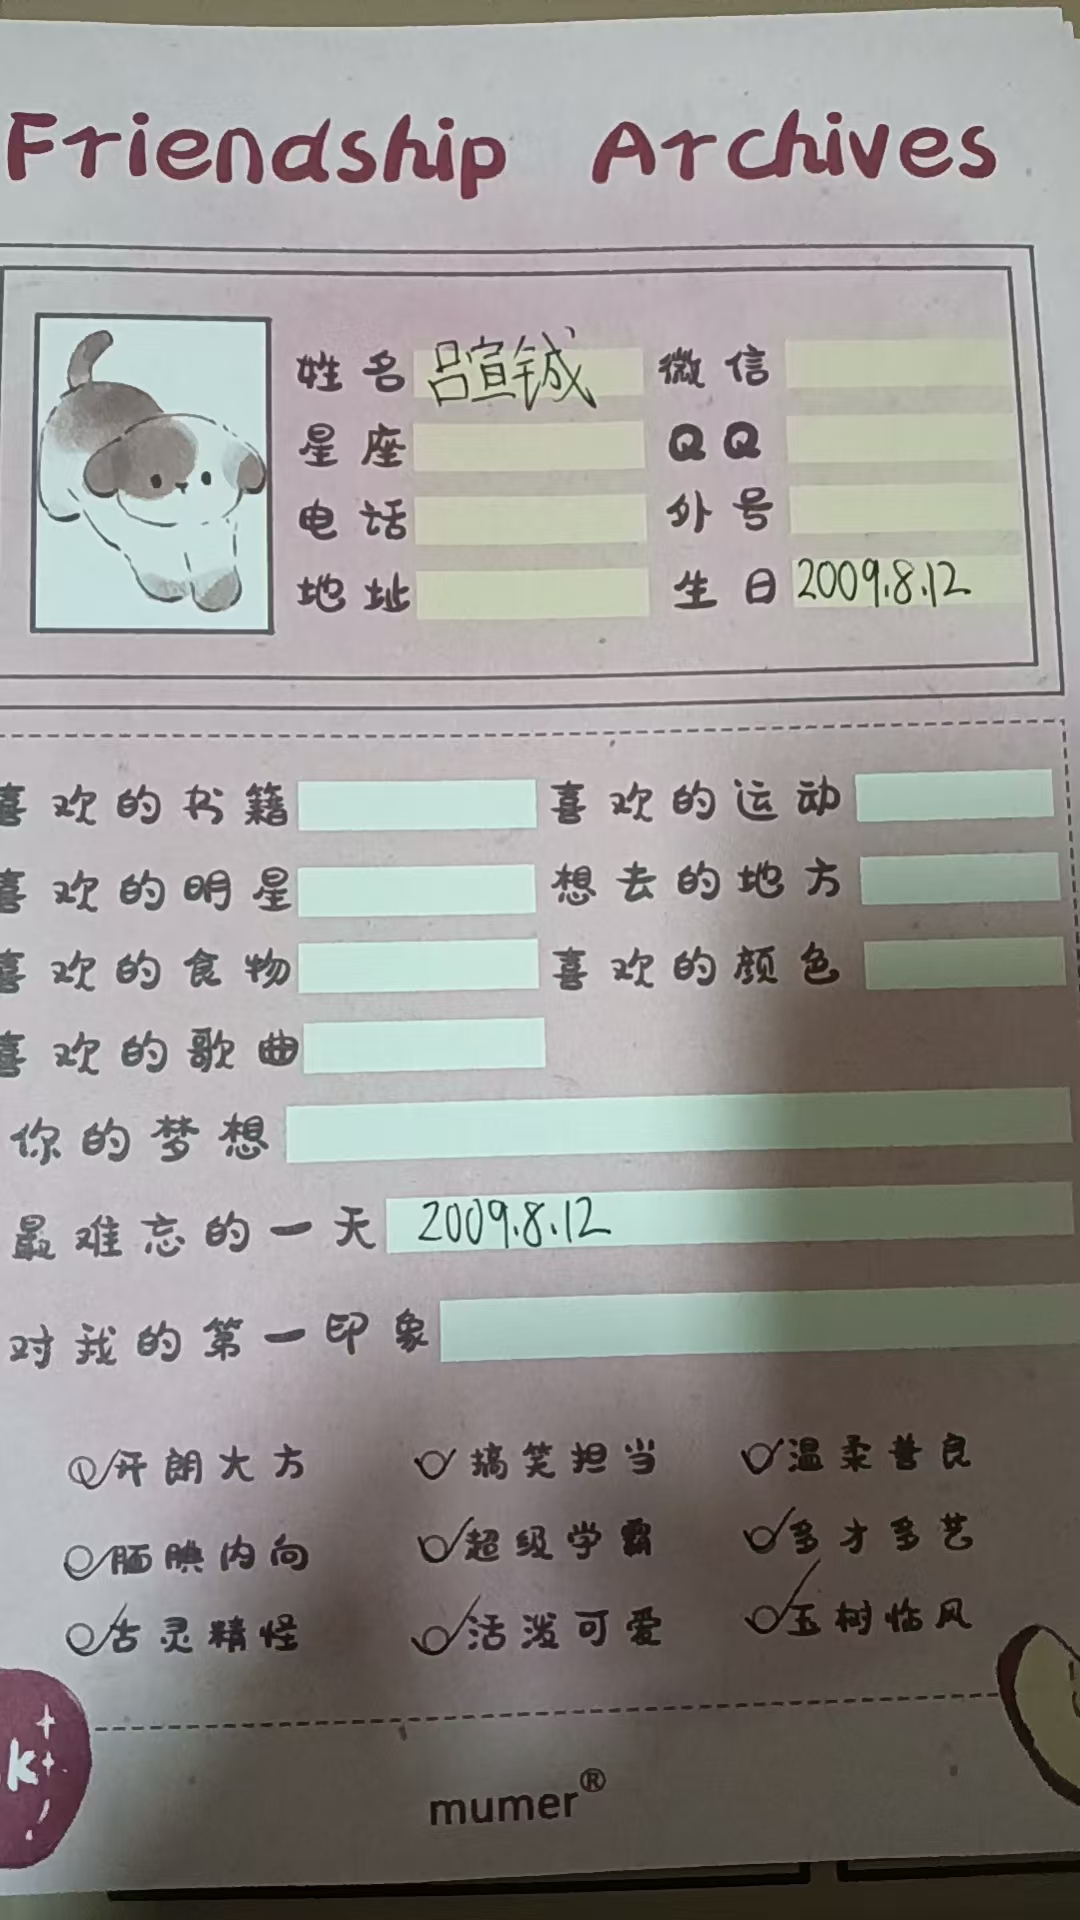 Friendship Archives
姓名 吕宣铖 微信
星座 QQ
电话 外号
地址 生日 2009.8.12
喜欢的书籍 喜欢的运动
喜欢的明星 想去的地方
喜欢的食物 喜欢的颜色
喜欢的歌曲
你的梦想
最难忘的一天 2009.8.12
对我的第一印象
开朗大方 搞笑担当 温柔善良
腼腆内向 超级学霸 多才多艺
古灵精怪 活泼可爱 玉树临风
k
mumer®